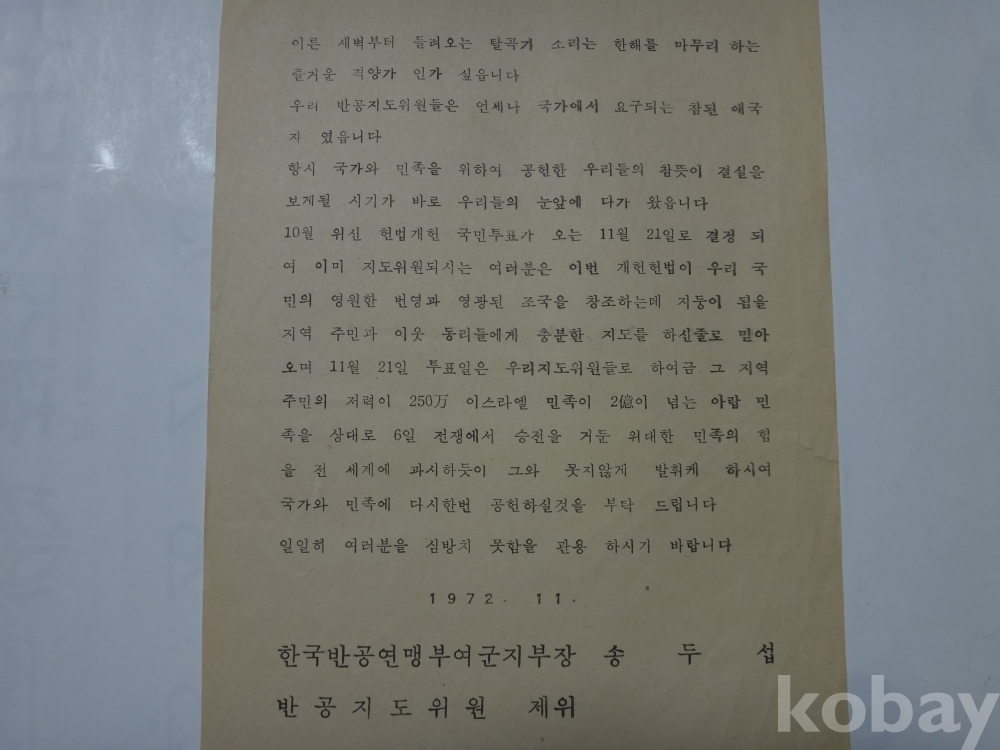 이른 새벽부터 들려오는 탈곡기 소리는 한해를 마무리 하는
즐거운 격양가 인가 싶읍니다
우리 반공지도위원들은 언제나 국가에서 요구되는 참된 애국
자 였읍니다
항시 국가와 민족을 위하여 공헌한 우리들의 참뜻이 결실을
보게될 시기가 바로 우리들의 눈앞에 다가 왔읍니다
10월 위신 헌법개헌 국민투표가 오는 11월 21일로 결정 되
여 이미 지도위원되시는 여러분은 이번 개헌헌법이 우리 국
민의 영원한 번영과 영광된 조국을 창조하는데 지둥이 됨을
지역 주민과 이웃 동리들에게 충분한 지도를 하신줄로 믿아
오며 11월 21일 투표일은 우리지도위원들로 하여금 그 지역
주민의 저력이 250万 이스라엘 민족이 2億이 넘는 아랍 민
족을 상대로 6일 전쟁에서 승전을 거둔 위대한 민족의 힘
을 전 세계에 과시하듯이 그와 못지않게 발휘케 하시여
국가와 민족에 다시한번 공헌하실것을 부탁 드립니다
일일히 여러분을 심방치 못함을 관용 하시기 바랍니다
1972. 11.
한국반공연맹부여군지부장 송 두 섭
반공지도위원 제위
kobay